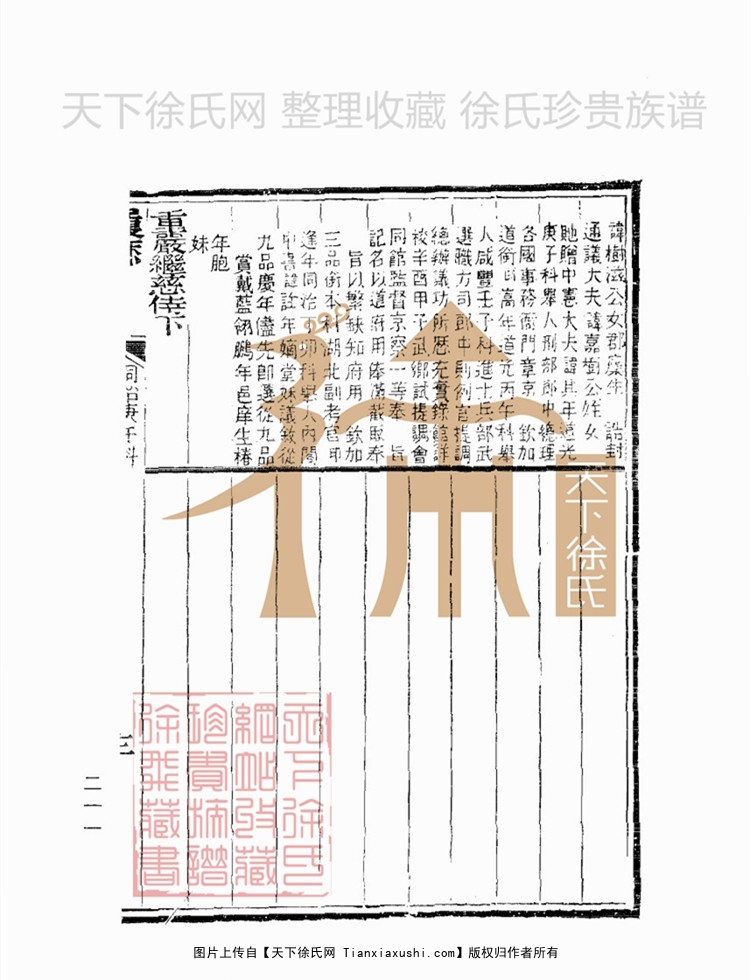 天下徐氏网 整理收藏 徐氏珍贵族谱
諱樹滋公女郡庠生 誥封
通議大夫諱嘉樹公姪女
貤贈中憲大夫諱其年道光
庚子科舉人刑部郎中總理
各國事務衙門章京 欽加
道銜 高年道光丙午科舉
人咸豐壬子科進士兵部武
選職方司郎中則例官提調
總辦議功所歷充實錄館詳
校辛酉甲子武鄉試提調會
同館監督京察一等奉 旨
記名以道府用 截取奉
旨以繁缺知府用 欽加
三品銜本科湖北副考官印
逢年同治丁卯科舉人內閣
中書 年嫡堂妹議敘從
九品慶年儘先即選從九品
賞戴藍翎鵬年邑庠生椿
年胞
妹
重嚴繼慈侍下
同治庚午科
三
二一一
天下徐氏
天下徐氏
網站收藏
珍貴族譜
徐飛藏書
图片上传自【天下徐氏网 Tianxiaxushi.com】版权归作者所有